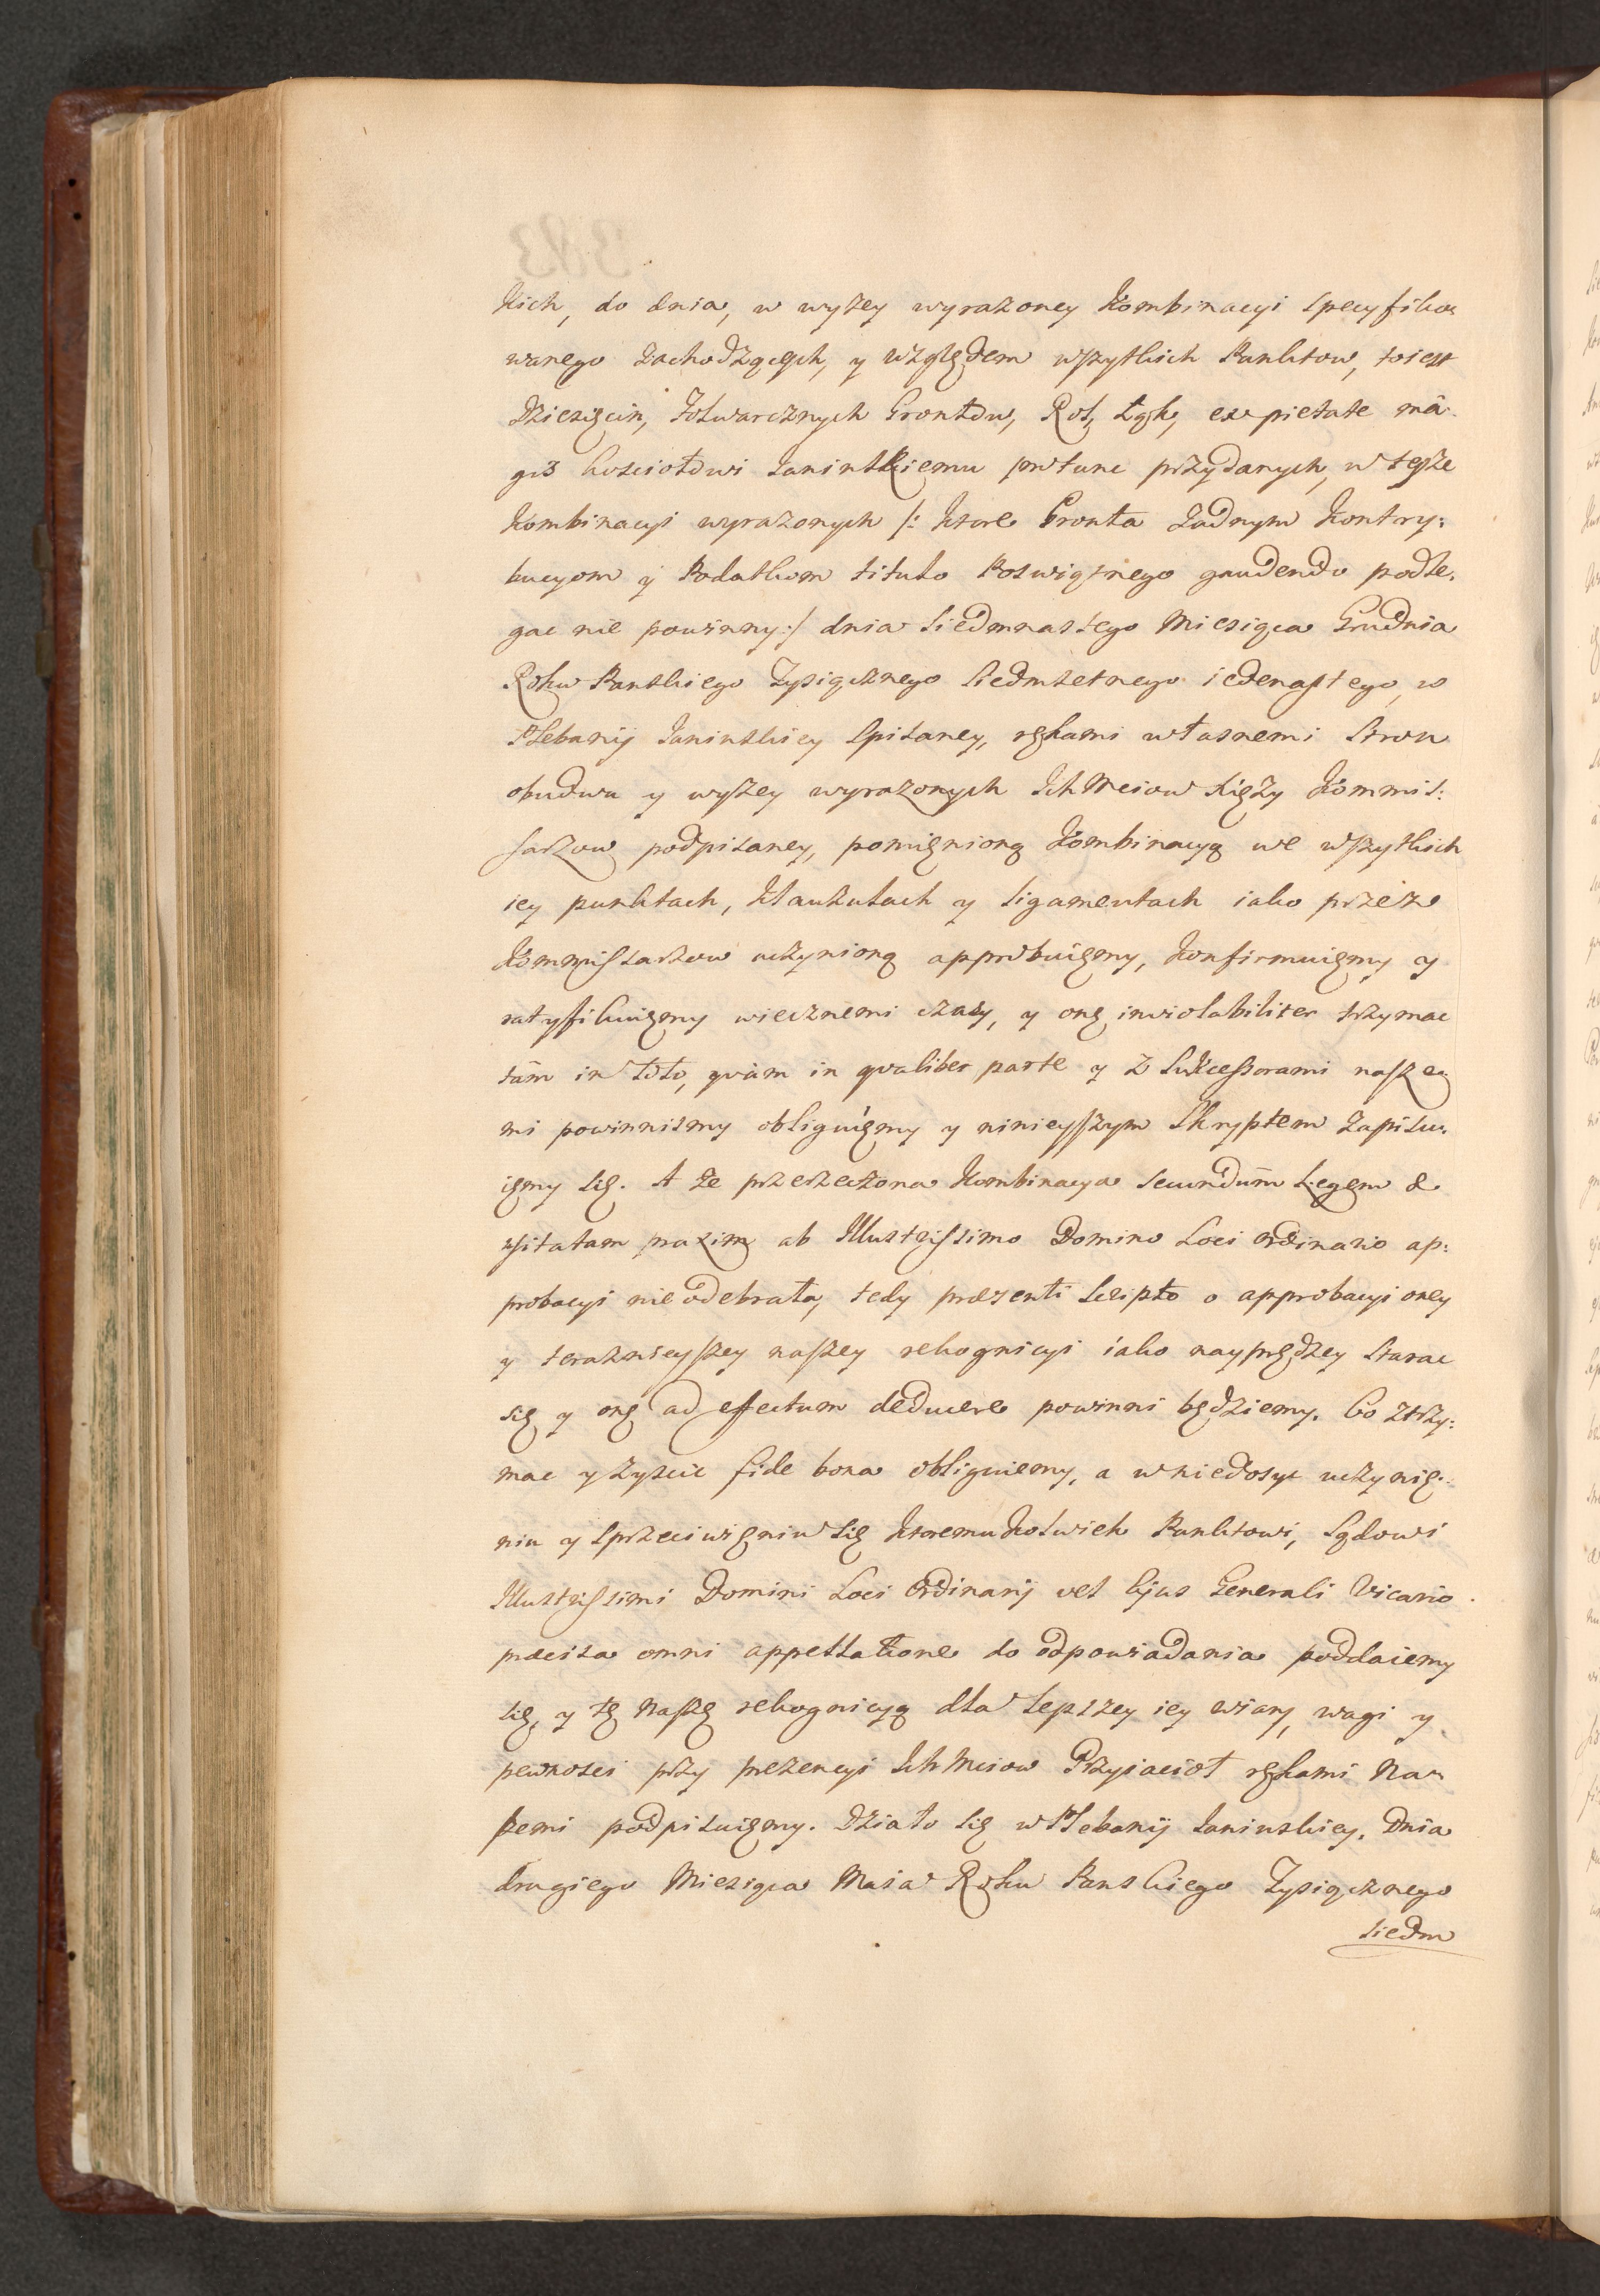 kich, do dnia, w wyżey wyrażoney Kombinacyi specyfiko-
wanego zachodzących, y względem wszytkich Punktow, toiest
Dziesięcin, Folwarcznych Grontow, Rol, Łąk, ex pietate ma-
gis kosciołowi Janinskiemu protunc przydanych, w teyże
Kombinacyi wyrażonych /: ktore Gronta żadnym Kontry:
bucyom y Podatkom titulo Poswiętnego gaudendo podle-
gac nie powinny :/ dnia siedmnastego Miesiąca Grudnia
Roku Panskiego Tysiącznego Siedmsetnego iedenastego, w
Plebanij Janinskiey spisaney, rękami własnemi stron
obudwu y wyżey wyrażonych Ich Mciow Xięży Kommis:
sarzow podpisaney, pomienioną Kombinacyą we wszytkich
iey punktach, Klauzulach y ligamentach iako przez
Kommissarzow uczynioną approbuięmy, Konfirmuięmy y
ratyfikuięmy wiecznemi czasy, y onę inviolabiliter trzymac
tàm in toto, quàm in qualibet parte y z Sukcessorami nasze-
mi powinnismy obliguięmy y ninieyszym Skryptem zapisu-
ięmy się. A że przerzeczona Kombinacya secundum Legem &
usitatam praxim ab Illustrissimo Domino Loci Ordinario ap:
probacyi nie odebrała, tedy præsenti scripto o approbacyi oney
y terazniejszey naszey rekognicyi iako nayprędzey starac
się y onę ad effectum deducere powinni będziemy. Co ztrzy:
mac y zyscic fide bona obliguiemy, a w niedosyc uczynię-
niu y sprzeciwięniu się ktoremukolwiek Punktowi, Sądowi
Illustrissimi Domini Loci Ordinarij vel Ejus Generali Vicario
præcisa omni appellatione do odpowiadania poddaiemy
się, y tę naszę rekognicyą dla lepszey iey wiary, wagi y
pewnosci przy prezencyi Ich Mciow Przyiacioł rękami Na-
szemi podpisuięmy. Działo się w Plebanij Janinskiey. Dnia
drugiego Miesiąca Maia Roku Panskiego Tysiącznego
siedm